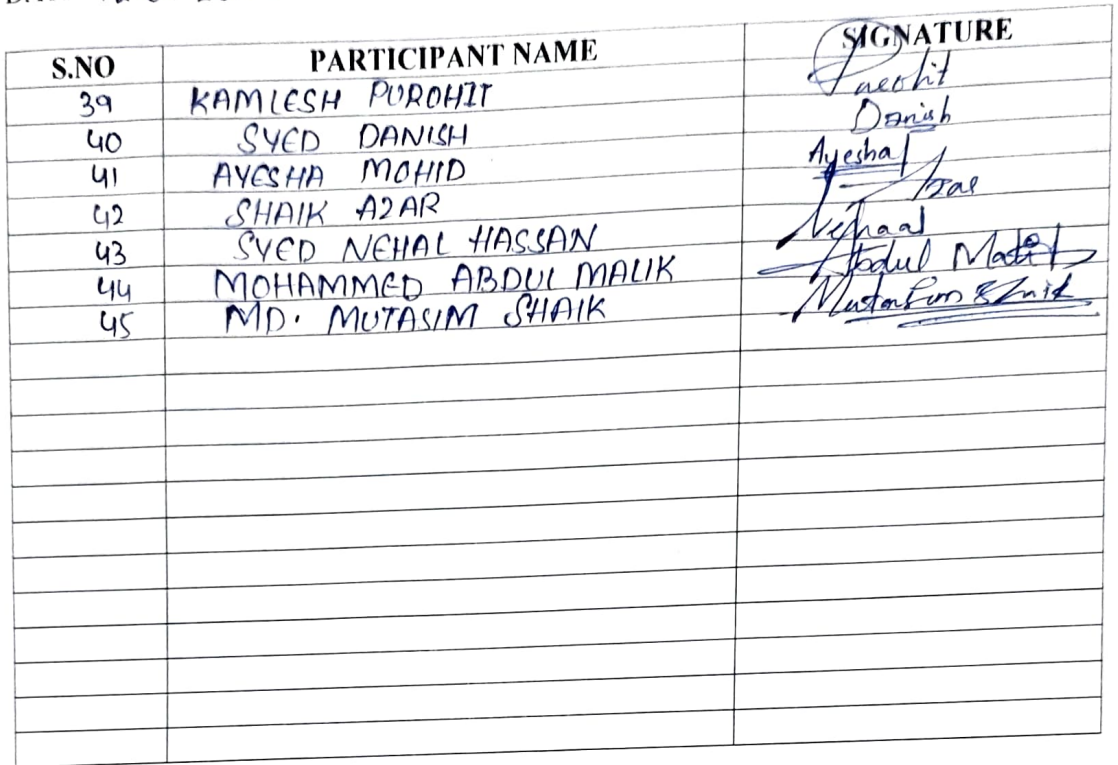 S.NO PARTICIPANT NAME SIGNATURE
39 KAMLESH PUROHIT Purohit
40 SYED DANISH Danish
41 AYESHA MOHID Ayesha
42 SHAIK AZAR
43 SYED NEHAL HASSAN Nehaal
44 MOHAMMED ABDUL MALIK Abdul
45 MD. MUTASIM SHAIK